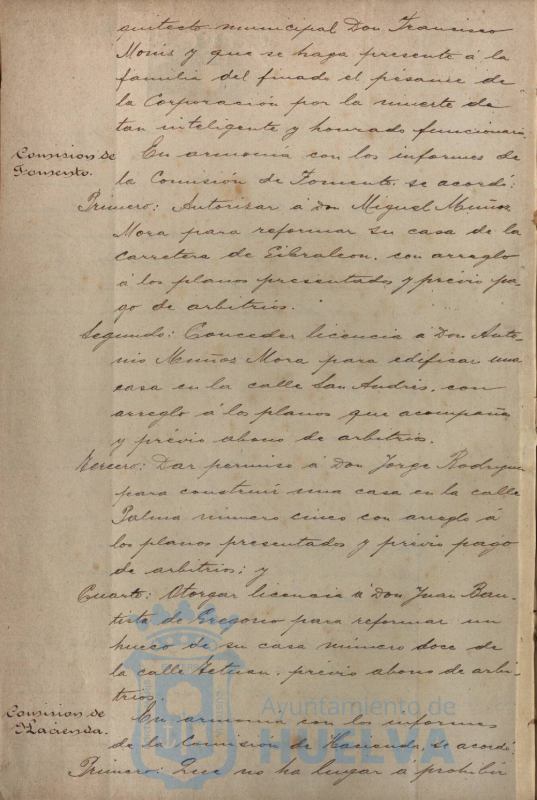 quitecto municipal Don Francisco
Monís y que se haga presente á la
familia del finado el pésame de
la Corporación por la muerte de
tan inteligente y honrado funcionario.
Comision de
Fomento.
En armonía con los informes de
la Comisión de Fomento, se acordó:
Primero: Autorisar á Don Miguel Muñoz
Mora para reformar su casa de la
carretera de Gibraleon, con arreglo
á los planos presentados y previo pa-
go de arbitrios.
Segundo: Conceder licencia á Don Anto-
nio Muñoz Mora para edificar una
casa en la calle San Andrés, con
arreglo á los planos que acompaña
y prévio abono de arbitrios.
Tercero: Dar permiso á Don Jorge Rodriguez
para construir una casa en la calle
Palma número cinco con arreglo á
los planos presentados y prévio pago
de arbitrios; y
Cuarto: Otorgar licencia á Don Juan Bau-
tista de Gregorio para reformar un
hueco de su casa número doce de
la calle Tetuan, prévio abono de arbi-
trios.
Comision de
Hacienda.
En armonía con los informes
de la Comisión de Hacienda, se acordó:
Primero: Que no ha lugar á prohibir
Ayuntamiento de
HUELVA